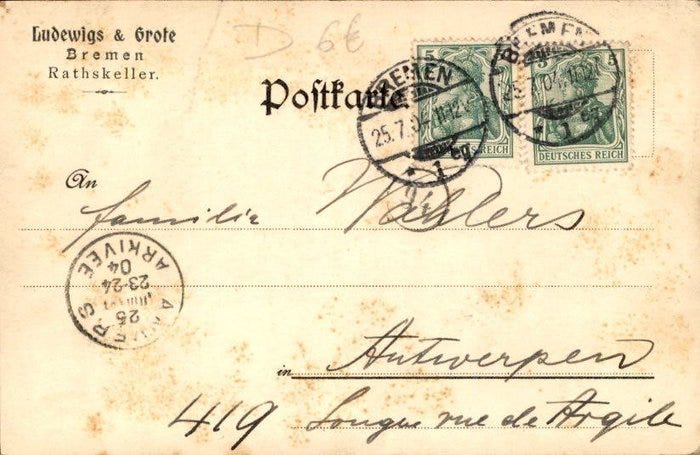 Ludewigs & Grote
Bremen
Rathskeller.
D 6€
Postkarte
BREMEN
25.7.04 11-12V.
* 1 eg
BREMEN
25.7.04 11-12V.
* 1 eg
5
5
DEUTSCHES REICH
DEUTSCHES REICH
An
Familie Wahlers
ANVERS
25
23-24
04
ARRIVEE
in Antwerpen
419 Longue rue de Argile